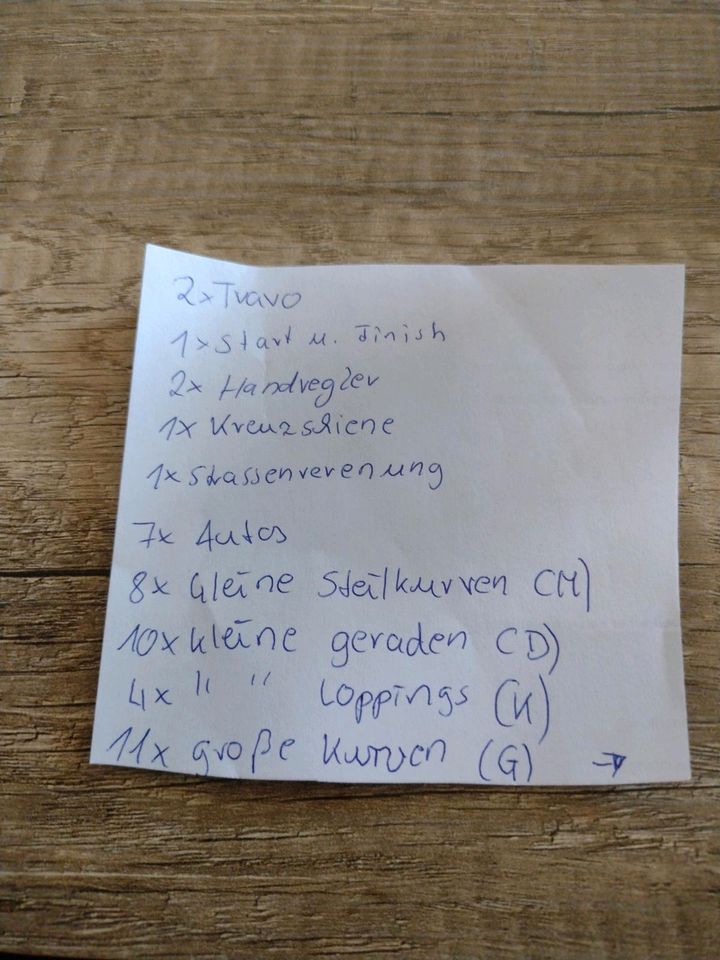 2x Travo
1x Start u. Finish
2x Handregler
1x Kreuzschiene
1x Strassenverenung
7x Autos
8x kleine Steilkurven (M)
10x kleine geraden (D)
4x " " Loppings (K)
11x große Kurven (G) →